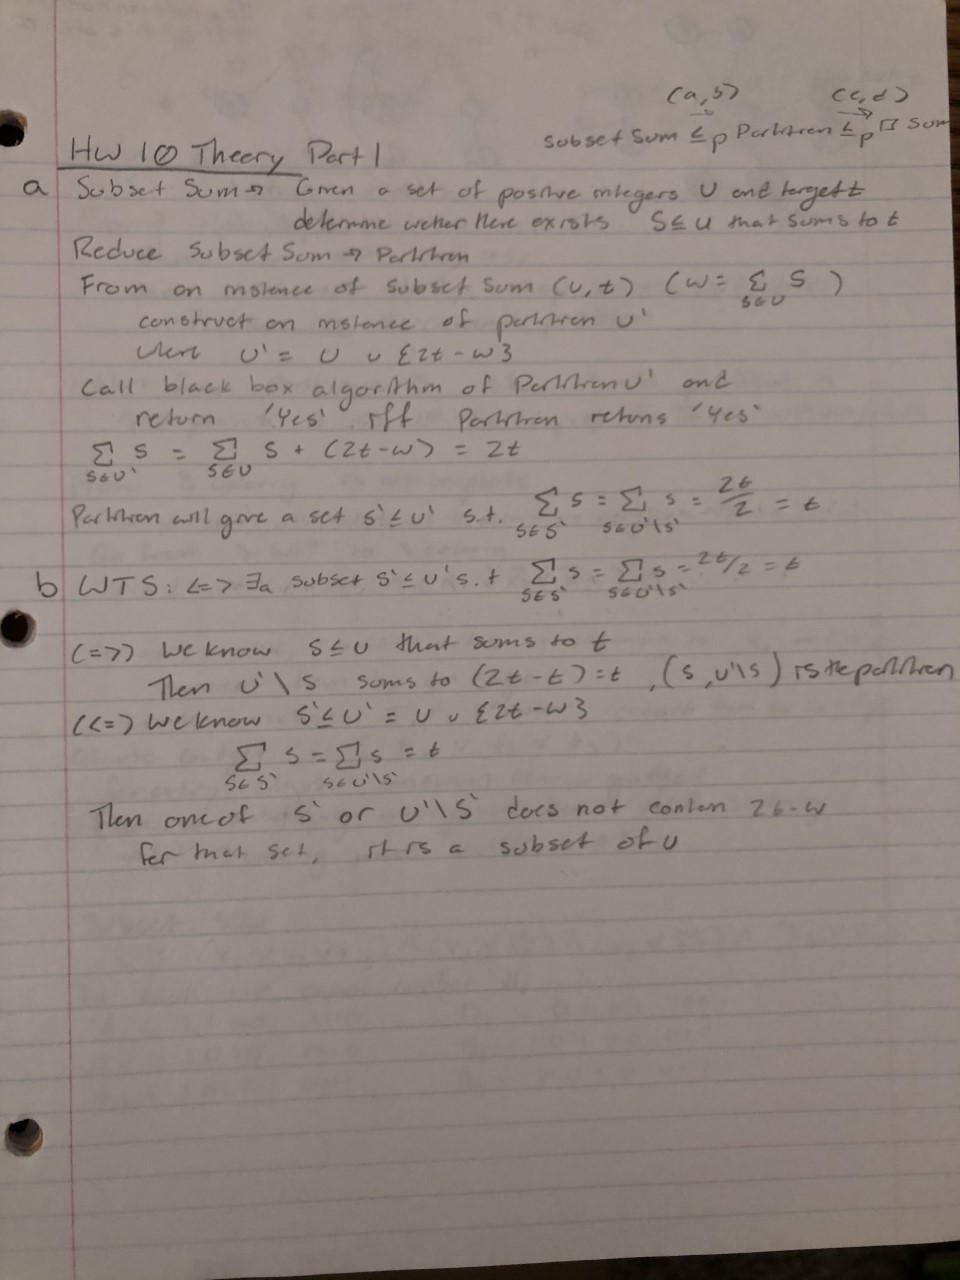 (a,b) (c,d)
Subset Sum ≤p Partition ≤p □ Sum
HW 10 Theory Part 1
a Subset Sum → Given a set of positive integers U and target t
determine wether there exists S ⊆ U that sums to t
Reduce Subset Sum → Partition
From an instance of subset sum (U,t) (w = Σ s∈U s)
construct an instance of partition U'
where U' = U ∪ {2t-w}
Call black box algorithm of Partition U' and
return 'Yes' iff Partition retuns 'Yes'
Σ s∈U' s = Σ s∈U s + (2t-w) = 2t
Partition will give a set S' ⊆ U' s.t. Σ s∈S' s = Σ s∈U'\S' s = 2t/2 = t
b WTS: <=> ∃a subset S' ⊆ U' s.t Σ s∈S' s = Σ s∈U'\S' s = 2t/2 = t
(=>) We know S ⊆ U that sums to t
Then U'\S sums to (2t-t)=t, (S, U'\S) is the partition
(<=) We know S' ⊆ U' = U ∪ {2t-w}
Σ s∈S' s = Σ s∈U'\S' s = t
Then one of S' or U'\S' does not contain 2t-w
for that set, it is a subset of U